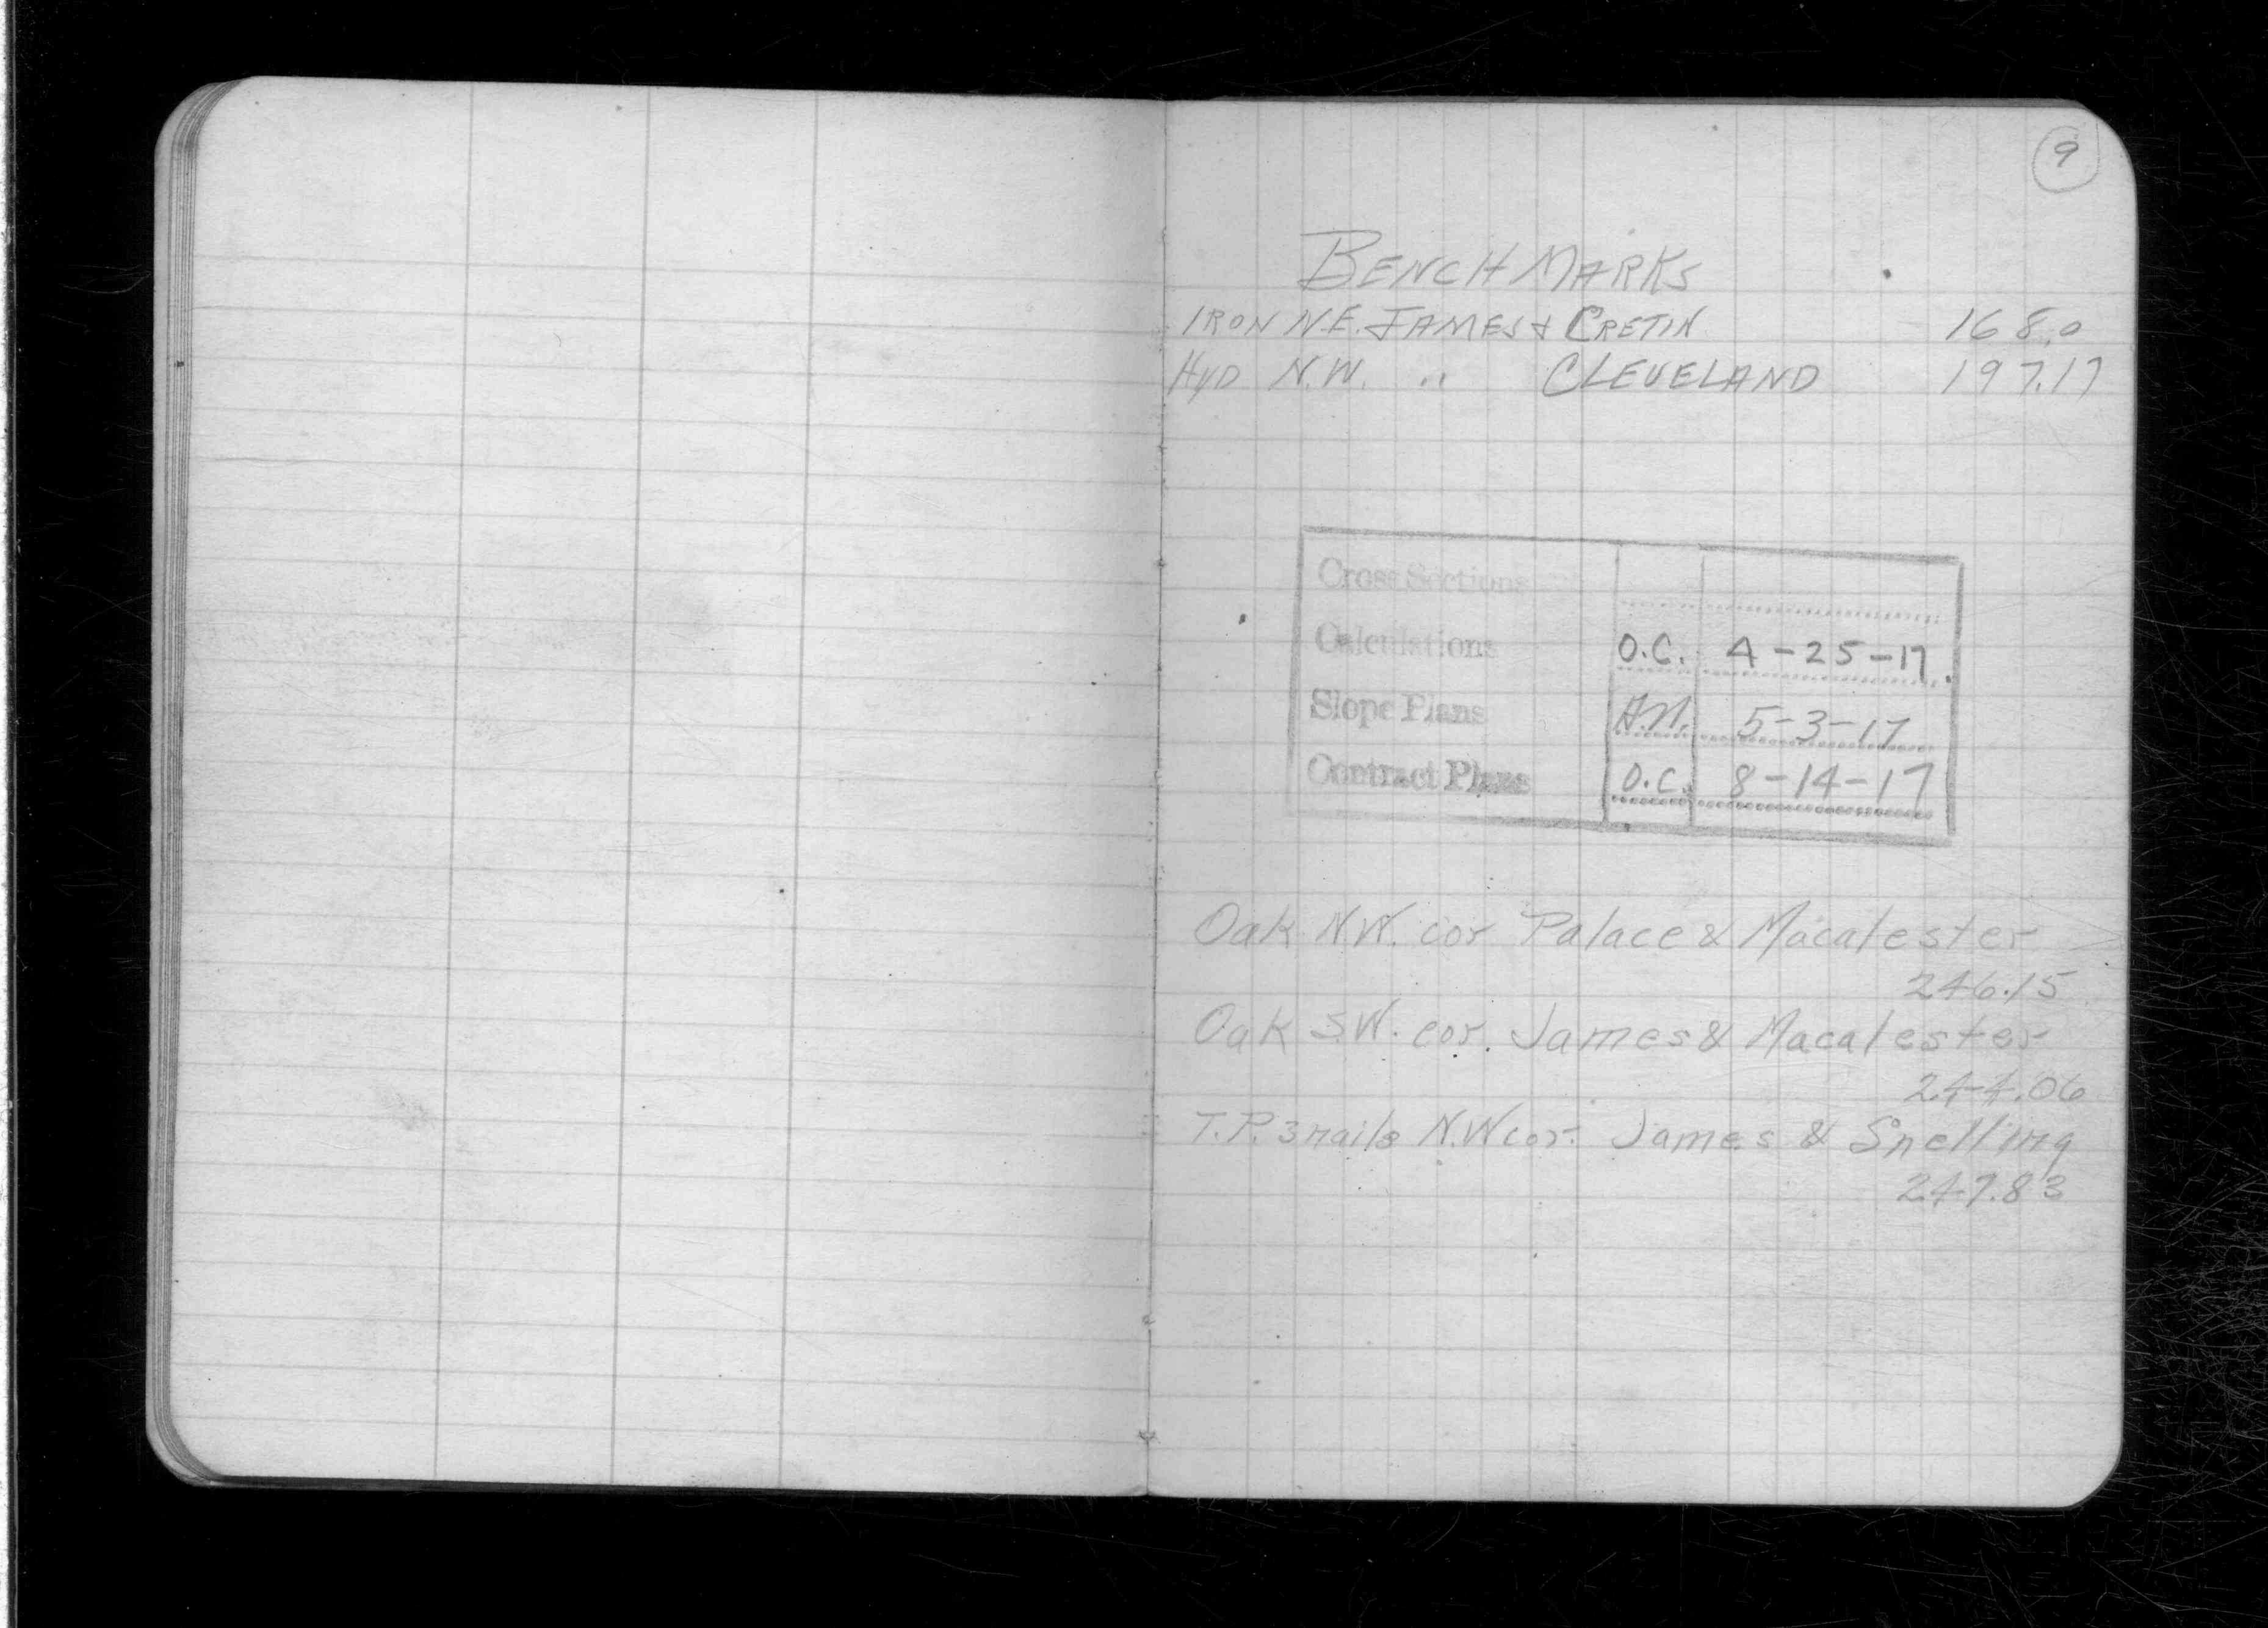 9
BENCH MARKS
IRON N.E. JAMES & CRETIN 168.0
HYD N.W. " CLEVELAND 197.17
Cross Sections
Calculations O.C. 4-25-17
Slope Plans A.N. 5-3-17
Contract Plans O.C. 8-14-17
Oak N.W. cor Palace & Macalester
246.15
Oak S.W. cor. James & Macalester
244.06
T.P. 3 nails N.W cor. James & Snelling
247.83